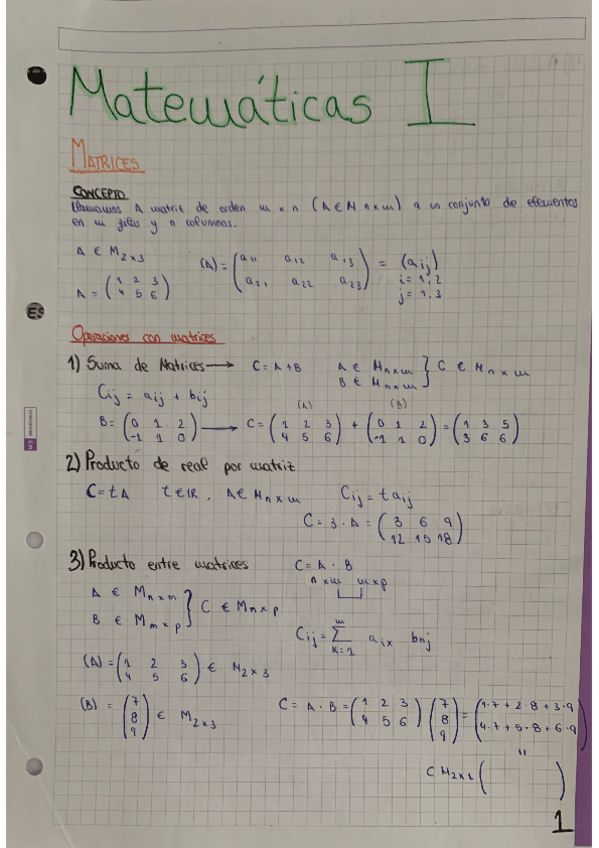 Matemáticas I
MATRICES
CONCEPTO
Llamamos A matriz de orden m × n (A ∈ M n×m) a un conjunto de elementos
en m filas y n columnas.
A ∈ M2×3
A = (1 2 3 / 4 5 6)
(A) = (a11 a12 a13 / a21 a22 a23) = (aij)
i = 1,2
j = 1,3
ES
Operaciones con matrices
1) Suma de Matrices → C = A+B A ∈ Mn×m B ∈ Mn×m } C ∈ Mn×m
Cij = aij + bij
(A) (B)
B = (0 1 2 / -1 1 0) → C = (1 2 3 / 4 5 6) + (0 1 2 / -1 1 0) = (1 3 5 / 3 6 6)
2) Producto de real por matriz
C = tA t ∈ IR, A ∈ Mn×m Cij = t aij
C = 3 · A = (3 6 9 / 12 15 18)
3) Producto entre matrices C = A · B
n×m m×p
A ∈ Mn×m
B ∈ Mm×p } C ∈ Mn×p
Cij = m∑k=1 aix bnj
(A) = (1 2 3 / 4 5 6) ∈ M2×3
(B) = (7 / 8 / 9) ∈ M2×3
C = A · B = (1 2 3 / 4 5 6) (7 / 8 / 9) = (1·7 + 2·8 + 3·9 / 4·7 + 5·8 + 6·9)
"
C M2×1 ( )
1